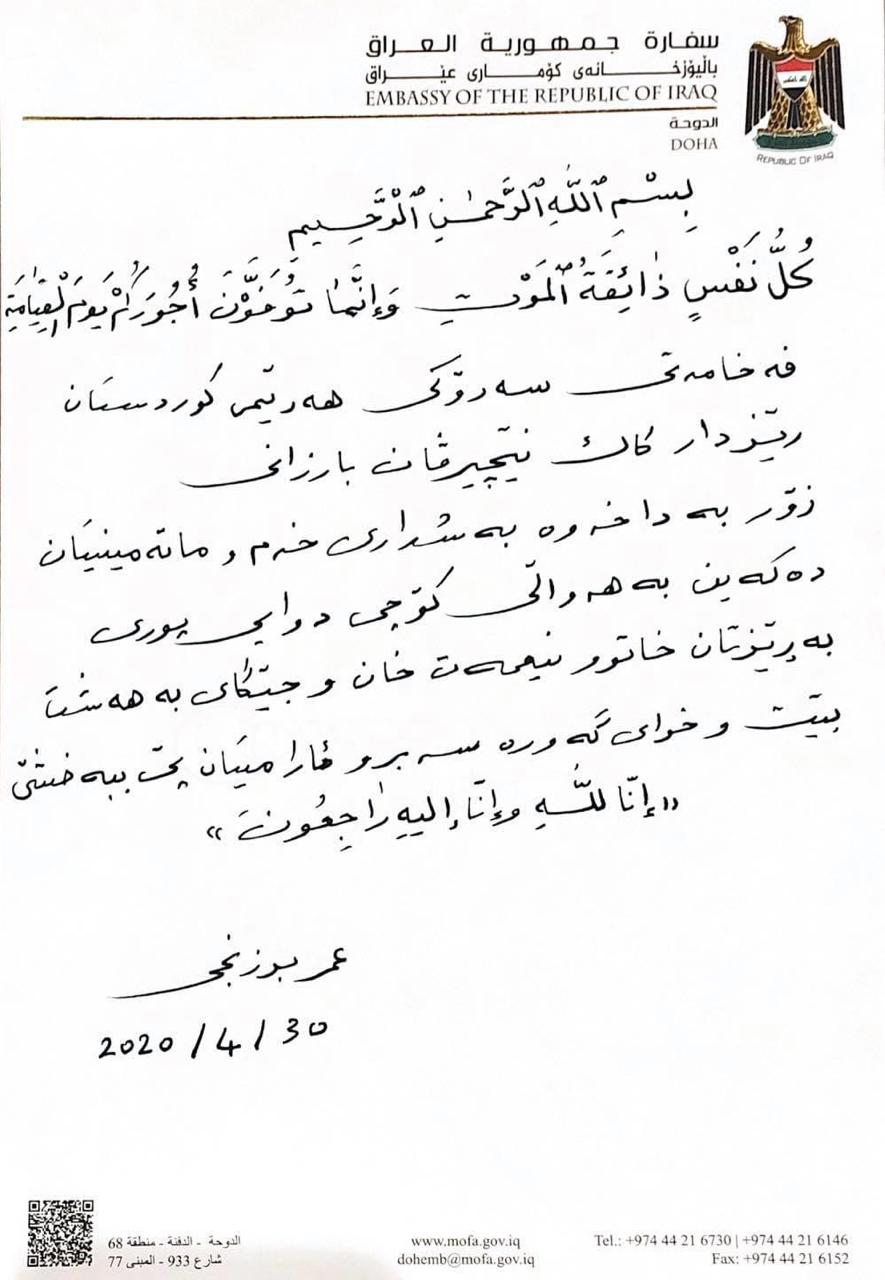 سفارة جمهورية العراق
باڵیۆزخانەی کۆماری عێراق
EMBASSY OF THE REPUBLIC OF IRAQ
الدوحة
DOHA
REPUBLIC OF IRAQ
بِسْمِ ٱللَّهِ ٱلرَّحْمٰنِ ٱلرَّحِيمِ
كُلُّ نَفْسٍ ذَائِقَةُ ٱلْمَوْتِ وَإِنَّمَا تُوَفَّوْنَ أُجُورَكُمْ يَوْمَ الْقِيَامَةِ
فەخامەتی سەرۆکی هەرێمی کوردستان
ڕێزدار کاک نێچیرڤان بارزانی
زۆر بە داخەوە بەشداری خەم و ماتەمینیتان
دەکەین بە هەواڵی کۆچی دوایی پوری
بەڕێزتان خاتوو نیعمەت خان و جێگای بەهەشت
بێت و خوای گەورە سەبر و ئارامیتان پێ ببەخشێ
«إنّا للّهِ وإنّا إليهِ رَاجِعُونَ»
عمر برزنجی
2020/4/30
الدوحة - الدفنة - منطقة 68
شارع 933 - المبنى 77
www.mofa.gov.iq
dohemb@mofa.gov.iq
Tel.: +974 44 21 6730 | +974 44 21 6146
Fax: +974 44 21 6152